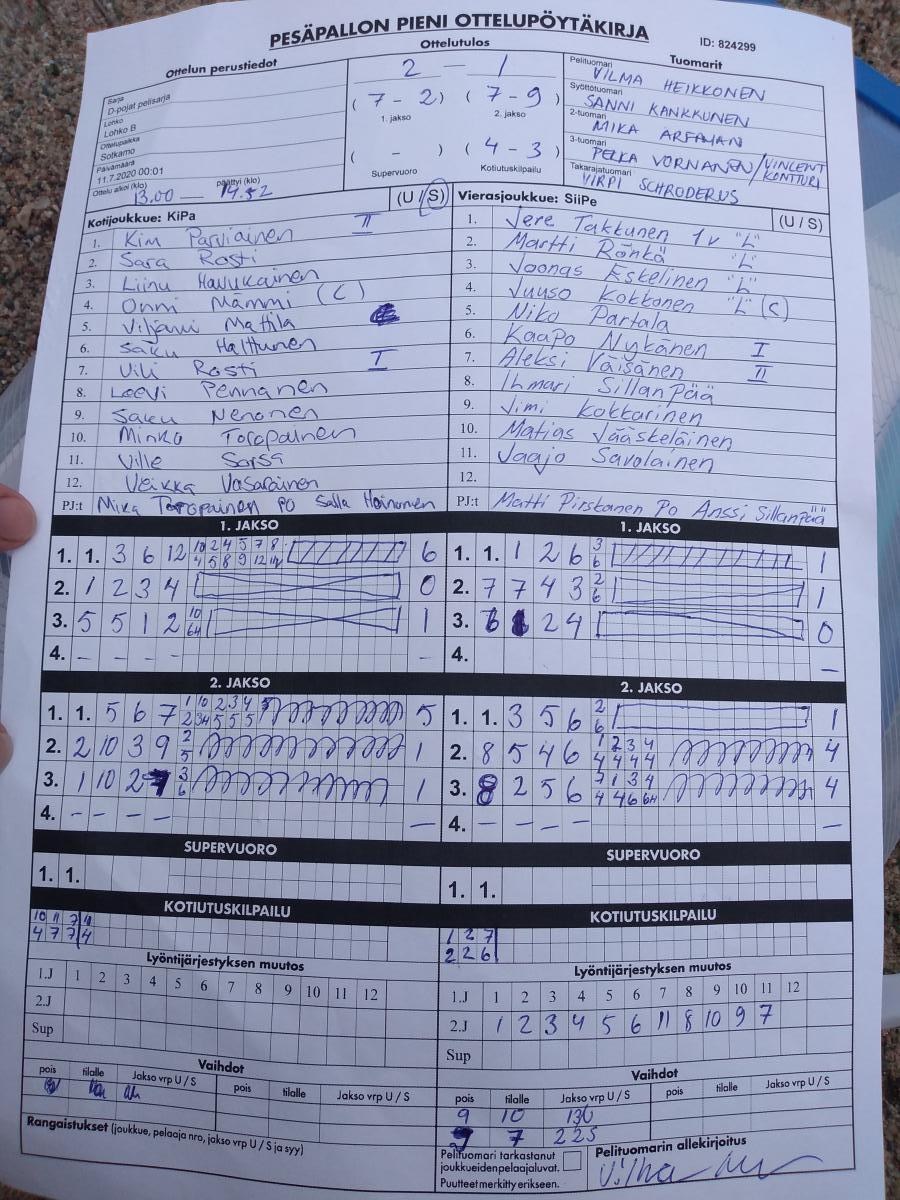 PESÄPALLON PIENI OTTELUPÖYTÄKIRJA
ID: 824299
Ottelun perustiedot
Sarja
D-pojat pelisarja
Lohko
Lohko B
Ottelupaikka
Sotkamo
Päivämäärä
11.7.2020 00:01
Ottelu alkoi (klo) päättyi (klo)
13.00 — 14.52
Ottelutulos
2 — 1
(7 - 2) (7 - 9)
1. jakso 2. jakso
( - ) (4 - 3)
Supervuoro Kotiutuskilpailu
Tuomarit
Pelituomari
VILMA HEIKKONEN
Syöttötuomari
SANNI KANKKUNEN
2-tuomari
MIKA
3-tuomari
PEKKA VORNANEN/VINCENT KONTTURI
Takarajatuomari
VIRPI SCHRODERUS
Kotijoukkue: KiPa (U / S)
1. Kim Parviainen II
2. Sara Rosti
3. Liinu Haukainen
4. Onni Mammi (C)
5. Viljami Mattila
6. Saku Halttunen
7. Vili Rosti I
8. Leevi Pennanen
9. Saku Nenonen
10. Minka Toropainen
11. Ville Sarsa
12. Veikka Vasarainen
PJ:t Mika Toropainen PO Salla Heinonen
Vierasjoukkue: SiiPe (U / S)
1. Jere Takkunen 1v "L"
2. Martti Rönkä "L"
3. Joonas Eskelinen "L"
4. Juuso Kokkonen "L" (C)
5. Niko Partala
6. Kaapo Nykänen I
7. Aleksi Väisänen II
8. Ihmari Sillanpää
9. Jimi Kokkarinen
10. Matias Jääskeläinen
11. Jaajo Savolainen
12.
PJ:t Matti Pirskanen PO Anssi Sillanpää
1. JAKSO
1. 1. 3 6 12 10 2 4 5 7 8 6
4 5 8 9 12
2. 1 2 3 4 0
3. 5 5 1 2 10 1
4. – – – – –
1. JAKSO
1. 1. 1 2 6 3 1
6
2. 7 7 4 3 2 1
6
3. 6 2 4 0
4. –
2. JAKSO
1. 1. 5 6 7 1 10 2 3 4 5
2 34 5 5 5
2. 2 10 3 9 2 1
5
3. 1 10 2 3 1
6
4. – – – – –
2. JAKSO
1. 1. 3 5 6 2 1
6
2. 8 5 4 6 1 2 3 4 4
4 4 4 4
3. 8 2 5 6 1 3 4 4
4 4 6 6H
4. – – – – –
SUPERVUORO
1. 1.
SUPERVUORO
1. 1.
KOTIUTUSKILPAILU
10 11 7 11
4 7 7 4
KOTIUTUSKILPAILU
1 2 7
2 2 6
Lyöntijärjestyksen muutos
1.J 1 2 3 4 5 6 7 8 9 10 11 12
2.J
Sup
Lyöntijärjestyksen muutos
1.J 1 2 3 4 5 6 7 8 9 10 11 12
2.J 1 2 3 4 5 6 11 8 10 9 7
Sup
Vaihdot
pois tilalle Jakso vrp U / S pois tilalle Jakso vrp U / S
Rangaistukset (joukkue, pelaaja nro, jakso vrp U / S ja syy)
Vaihdot
pois tilalle Jakso vrp U / S pois tilalle Jakso vrp U / S
9 10 13U
7 22S
Pelituomari tarkastanut
joukkueiden pelaajaluvat.
Puutteet merkitty erikseen.
Pelituomarin allekirjoitus